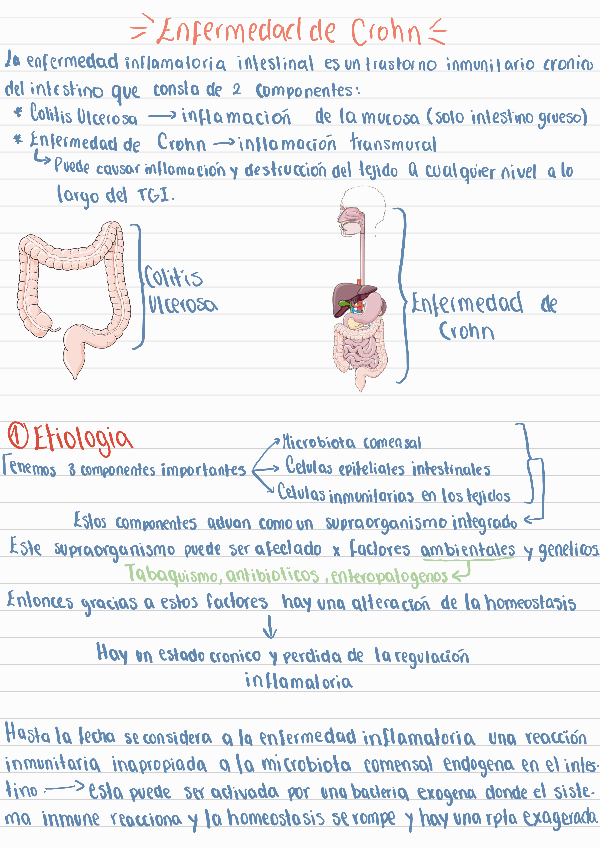 Enfermedad de Crohn
La enfermedad inflamatoria intestinal es un trastorno inmunitario cronico
del intestino que consta de 2 componentes:
* Colitis Ulcerosa → inflamación de la mucosa (solo intestino grueso)
* Enfermedad de Crohn → inflamación transmural
↳ Puede causar inflamación y destrucción del tejido a cualquier nivel a lo
largo del TGI.
Colitis
Ulcerosa
Enfermedad de
Crohn
① Etiologia
Tenemos 3 componentes importantes
Microbiota comensal
Celulas epiteliales intestinales
Celulas inmunitarias en los tejidos
Estos componentes actuan como un supraorganismo integrado
Este supraorganismo puede ser afectado x factores ambientales y geneticos
Tabaquismo, antibioticos, enteropatogenos
Entonces gracias a estos factores hay una alteración de la homeostasis
↓
Hay un estado cronico y perdida de la regulación
inflamatoria
Hasta la fecha se considera a la enfermedad inflamatoria una reacción
inmunitaria inapropiada a la microbiota comensal endogena en el intes-
tino → Esta puede ser activada por una bacteria exogena donde el siste-
ma inmune reacciona y la homeostasis se rompe y hay una rpta exagerada